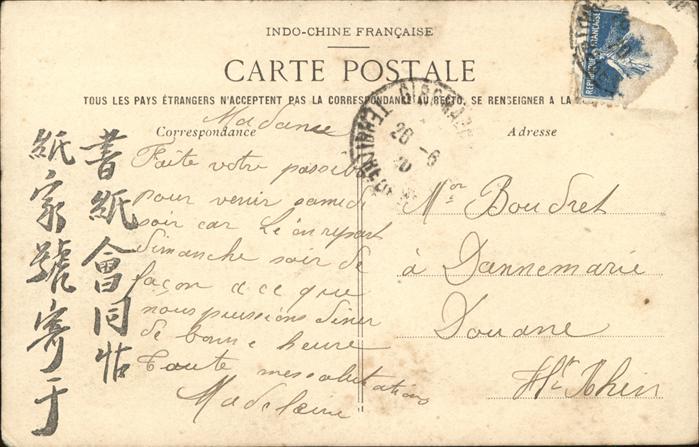 INDO-CHINE FRANÇAISE
CARTE POSTALE
TOUS LES PAYS ÉTRANGERS N'ACCEPTENT PAS LA CORRESPONDANCE AU RECTO, SE RENSEIGNER A LA
Correspondance
Adresse
Madame
Faite votre possible
pour venir samedi
soir car Léon repart
dimanche soir de
façon a ce que
nous puissions diner
de bonne heure
Toute mes salutations
Madelaine
Mor Boudret
à Dannemarie
Douane
Ht Rhin
書紙會同帖
紙家號寄于
REPUBLIQUE FRANÇAISE
26 -6
20